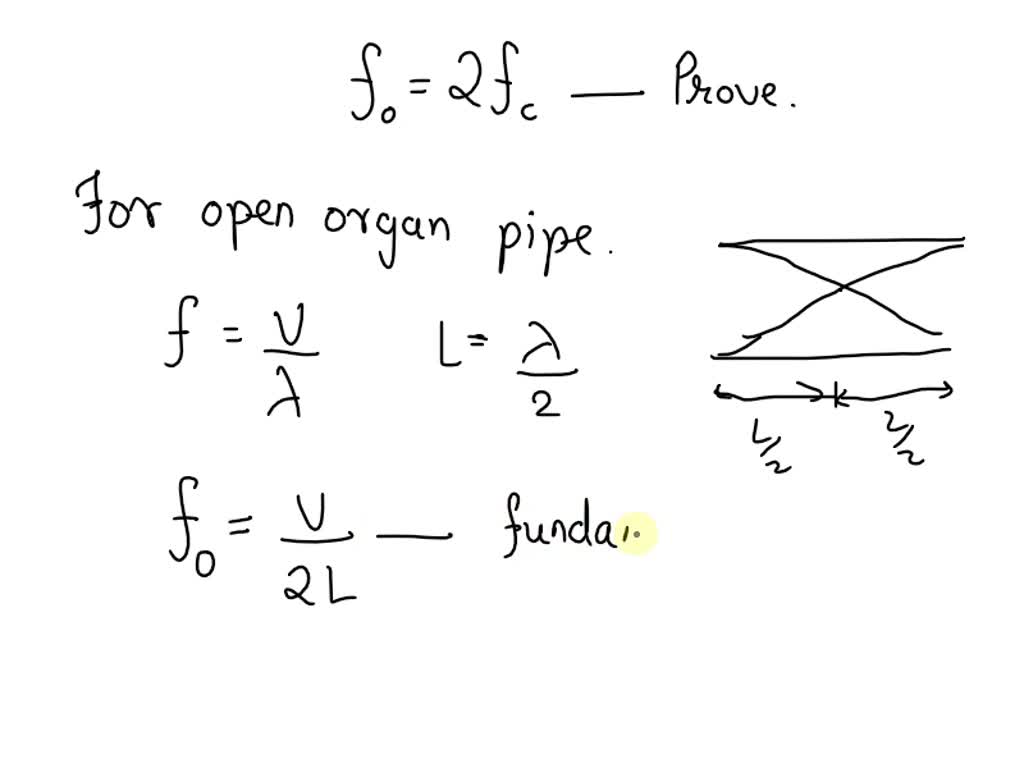 f₀ = 2f_c — Prove.
For open organ pipe.
f = V/λ L = λ/2
L/2 L/2
f₀ = V/2L — funda